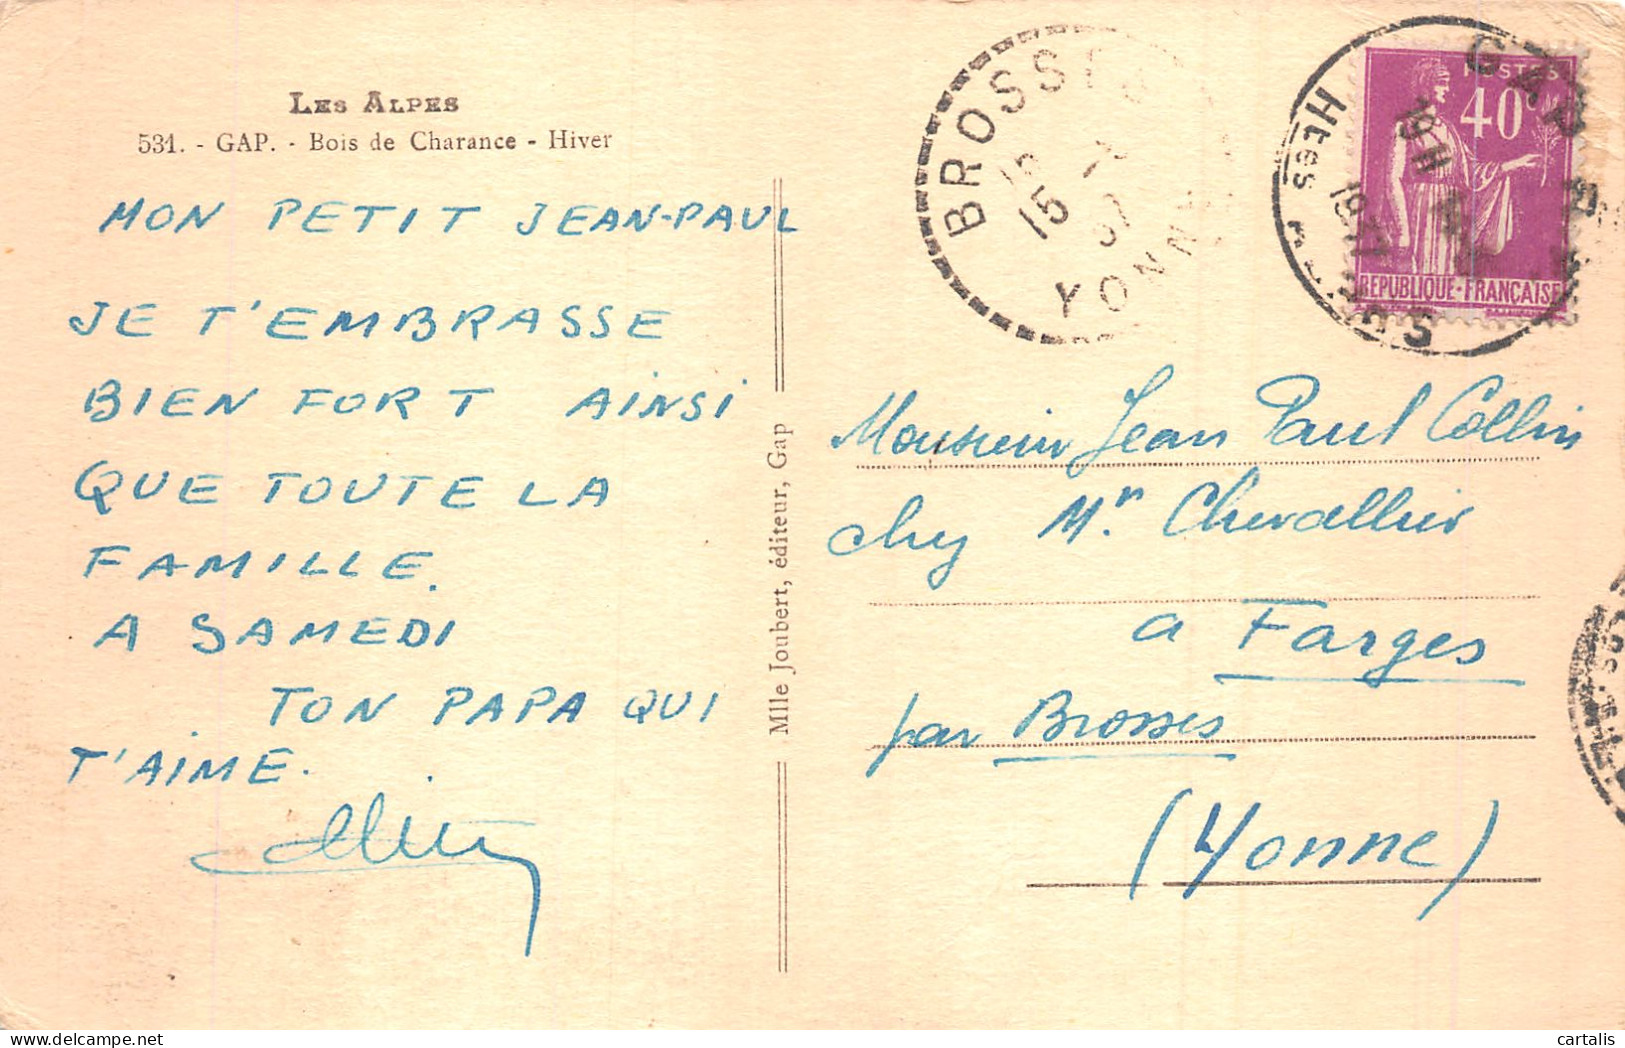 LES ALPES
531. - GAP. - Bois de Charance - Hiver
MON PETIT JEAN-PAUL
JE T'EMBRASSE
BIEN FORT AINSI
QUE TOUTE LA
FAMILLE.
A SAMEDI
TON PAPA QUI
T'AIME.
Mlle Joubert, éditeur, Gap
BROSSES
15
YONNE
GAP
Htes
1937
POSTES
40c
REPUBLIQUE-FRANÇAISE
Monsieur Jean Paul Collin
chez Mr. Chevallier
a Farges
par Brosses
(Yonne)
cartalis